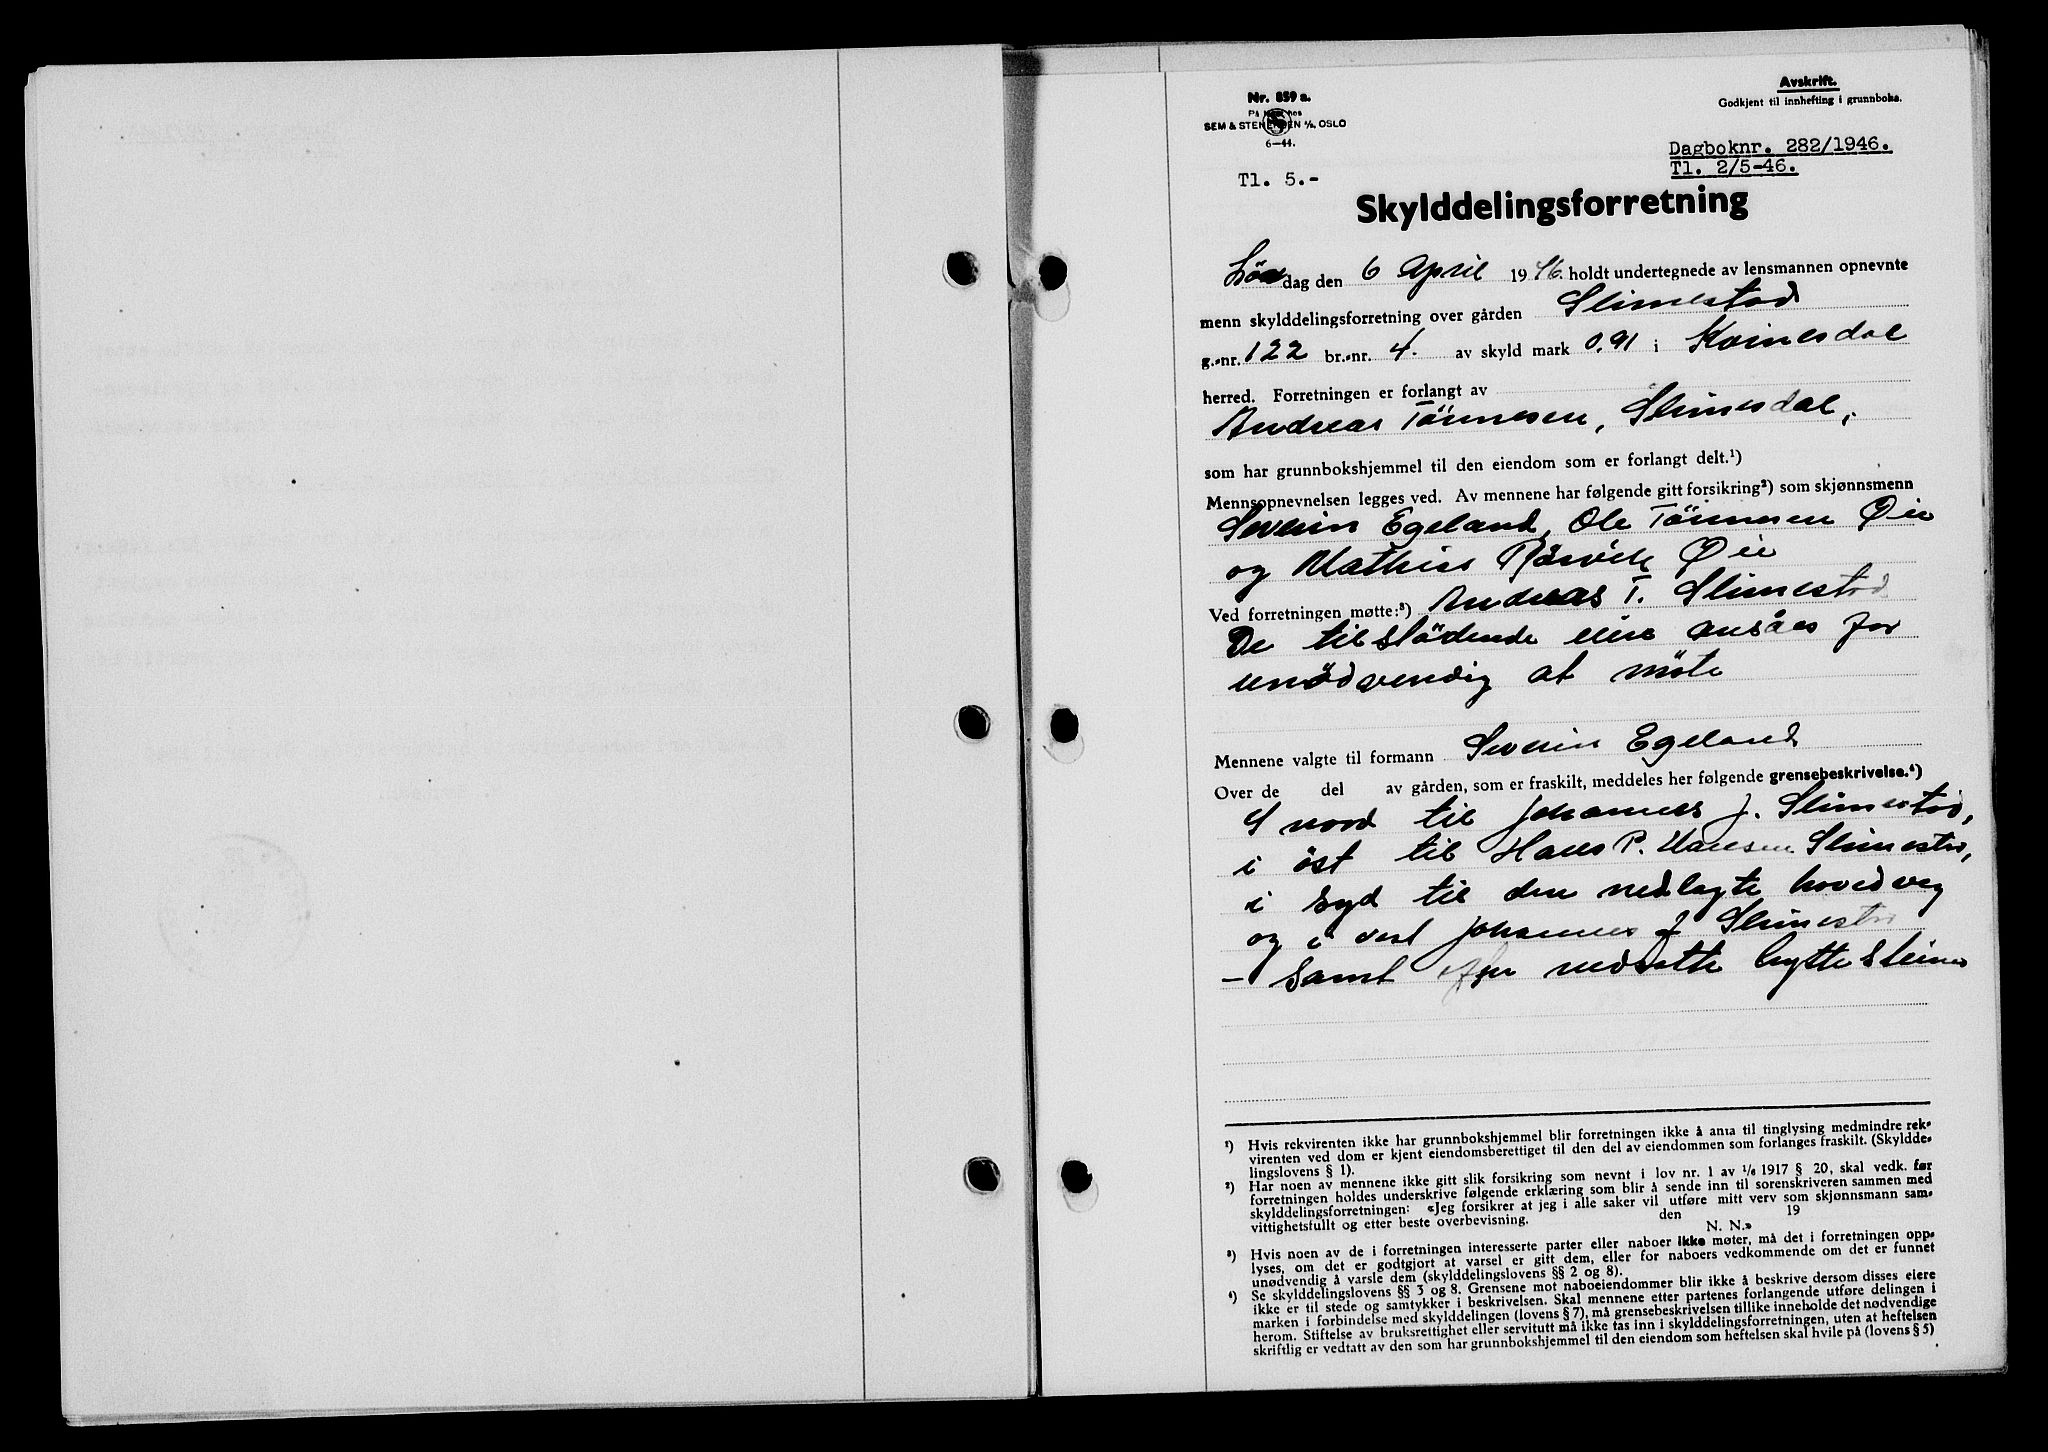 Nr. 859 a.
På lager hos
SEM & STENERSEN A/S, OSLO
6—44.
Avskrift.
Godkjent til innhefting i grunnboka.
Dagboknr. 282/1946.
Tl. 2/5-46.
Tl. 5.-
Skylddelingsforretning
Lördag den 6 April 1946. holdt undertegnede av lensmannen opnevnte
menn skylddelingsforretning over gården Slimestad
g.-nr. 122 br.-nr. 4. av skyld mark 0,91 i Kvinesdal
herred. Forretningen er forlangt av
Andreas Tönnesen, Slimesdal,
som har grunnbokshjemmel til den eiendom som er forlangt delt.¹)
Mennsopnevnelsen legges ved. Av mennene har følgende gitt forsikring²) som skjønnsmenn
Severin Egeland, Ole Tönnesen Øie
og Mathias Rörvik Øie
Ved forretningen møtte:³) Andreas T. Slimestad
De tilstödende eiere ansåes for
unödvendig at möte
Mennene valgte til formann Severin Egeland
Over de del av gården, som er fraskilt, meddeles her følgende grensebeskrivelse.⁴)
I nord til Johannes J. Slimestad,
i öst til Hans P. Hansen Slimestad,
i syd til den nedlagte hovedveg
og i vest Johannes J Slimestad
— Samt nedsatte byttesteiner
¹) Hvis rekvirenten ikke har grunnbokshjemmel blir forretningen ikke å anta til tinglysing medmindre rek-
virenten ved dom er kjent eiendomsberettiget til den del av eiendommen som forlanges fraskilt. (Skyldde-
lingslovens § 1).
²) Har noen av mennene ikke gitt slik forsikring som nevnt i lov nr. 1 av 1/6 1917 § 20, skal vedk. før
forretningen holdes underskrive følgende erklæring som blir å sende inn til sorenskriveren sammen med
skylddelingsforretningen: «Jeg forsikrer at jeg i alle saker vil utføre mitt verv som skjønnsmann sam-
vittighetsfullt og etter beste overbevisning. den 19
N. N.»
³) Hvis noen av de i forretningen interesserte parter eller naboer ikke møter, må det i forretningen opp-
lyses, om det er godtgjort at varsel er gitt dem, eller for naboers vedkommende om det er funnet
unødvendig å varsle dem (skylddelingslovens §§ 2 og 8).
⁴) Se skylddelingslovens §§ 3 og 8. Grensene mot naboeiendommer blir ikke å beskrive dersom disses eiere
ikke er til stede og samtykker i beskrivelsen. Skal mennene etter partenes forlangende utføre delingen i
marken i forbindelse med skylddelingen (lovens § 7), må grensebeskrivelsen tillike inneholde det nødvendige
herom. Stiftelse av bruksrettighet eller servitutt må ikke tas inn i skylddelingsforretningen, uten at heftelsen
skriftlig er vedtatt av den som har grunnbokshjemmel til den eiendom som heftelsen skal hvile på (lovens § 5)